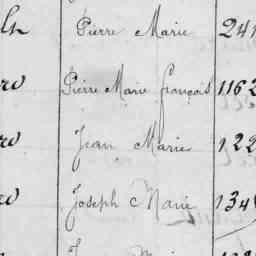 Pierre Marie 241
Pierre Marie françois 1162
Jean Marie 122
Joseph Marie 134